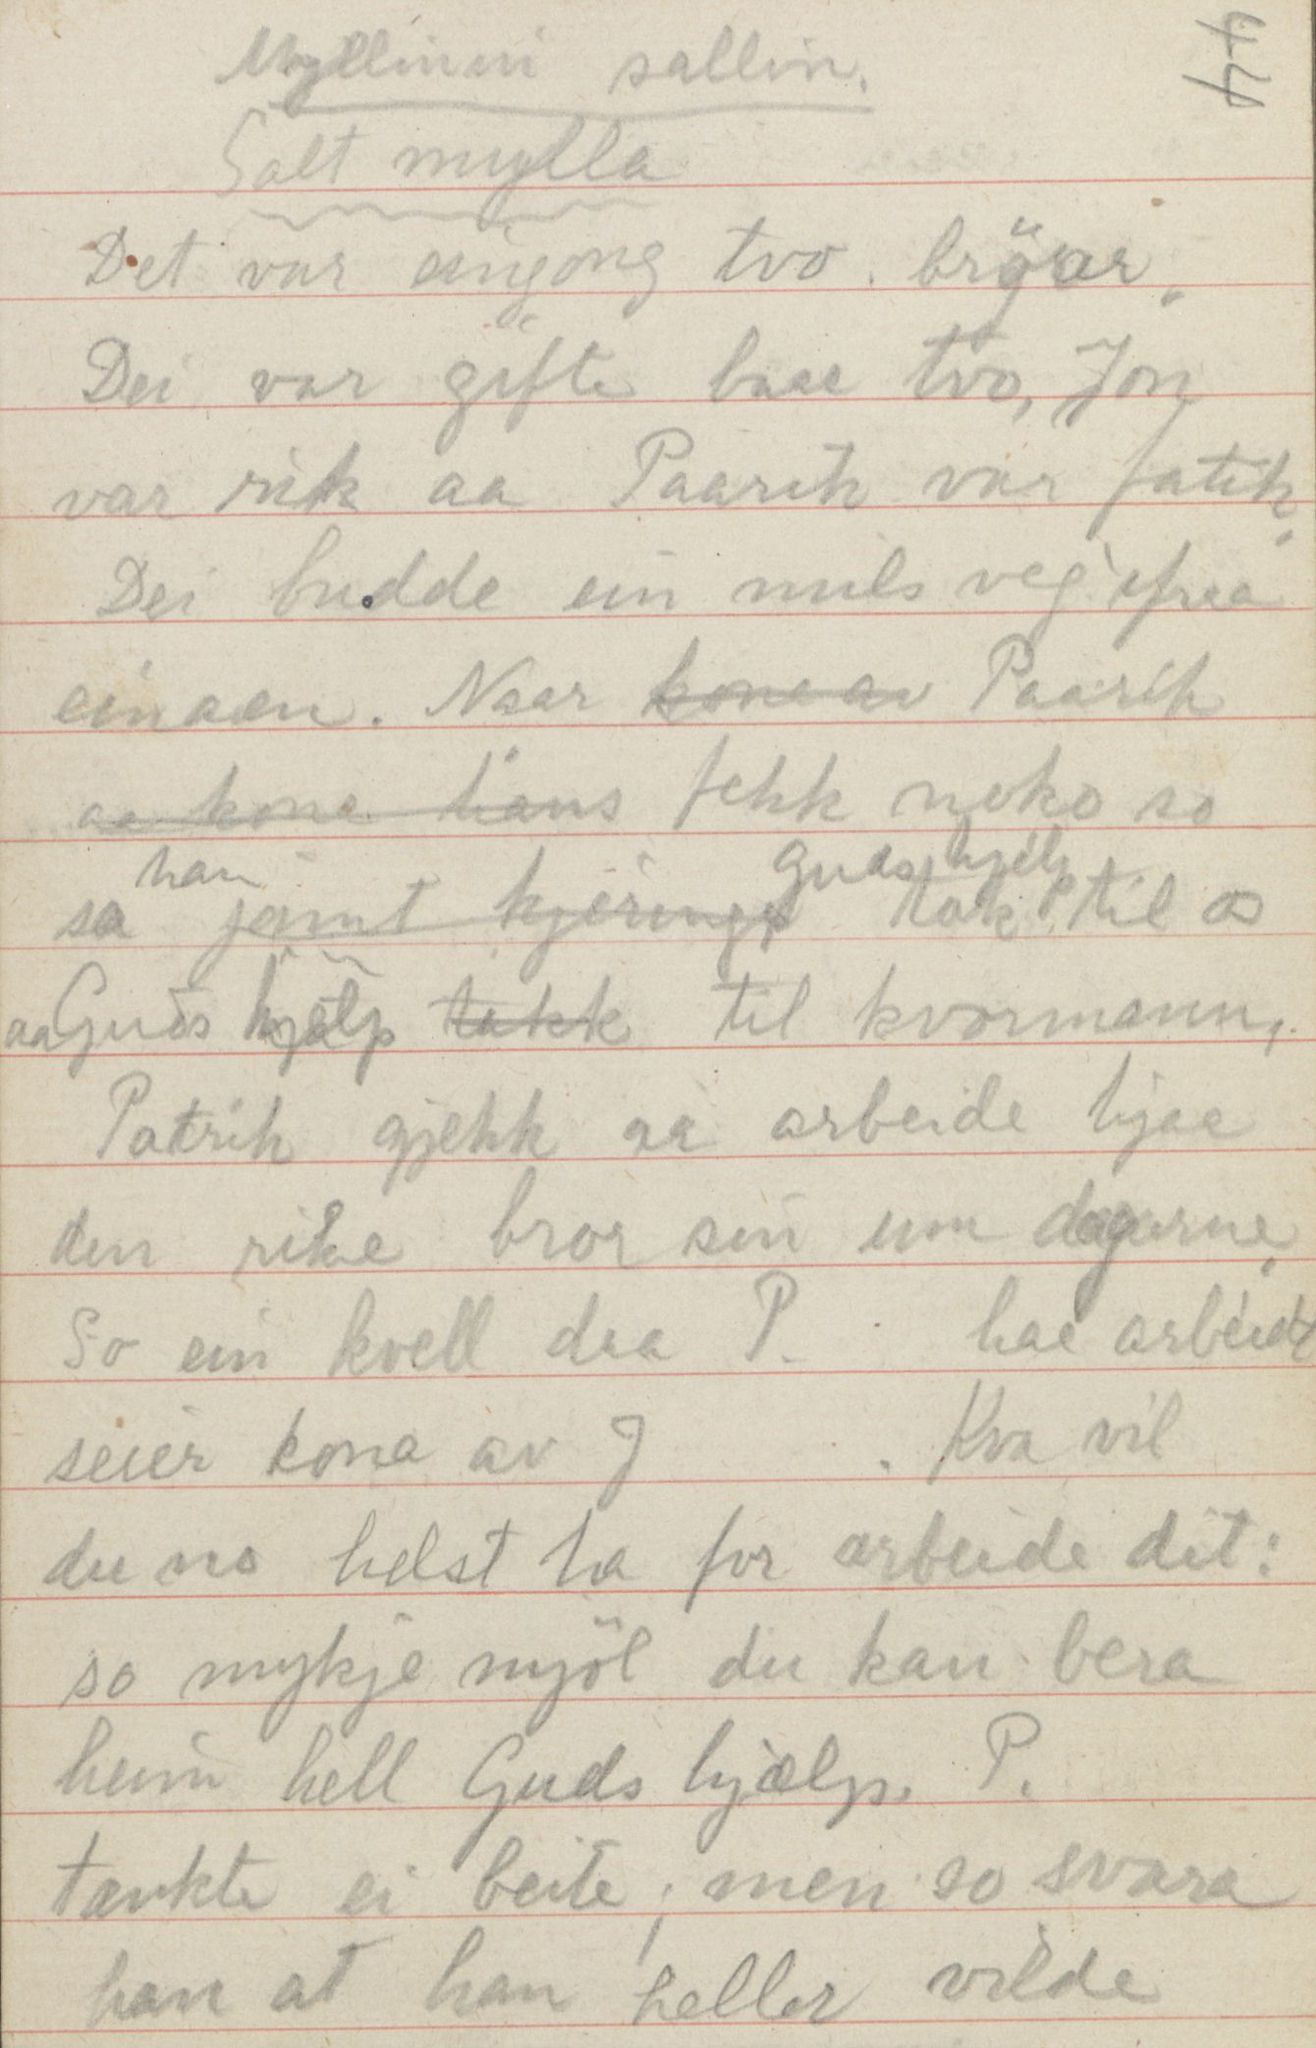 44
Myllinin sallin.
Salt mylla
Det var eingong tvo bröar.
Dei var gifte baae tvo, Jon
var rik aa Paarik var fatik.
Dei budde ein mils veg ifraa
einaen. Naar kona av Paarik
aa kona hans fekk noko so
sa han jamt kjeringi Guds hjelp tak til os
aa Guds hjelp takk til kvormann,
Patrik gjekk aa arbeide hjaa
den rike bror sin um dagarne.
So ein kvell daa P. hae arbeidt
seier kona av J . Kva vil
du no helst ha for arbeide dit:
so mykje mjöl du kan bera
heim hell Guds hjælp. P.
tænkte ei beite, men so svara
han at han heller vilde